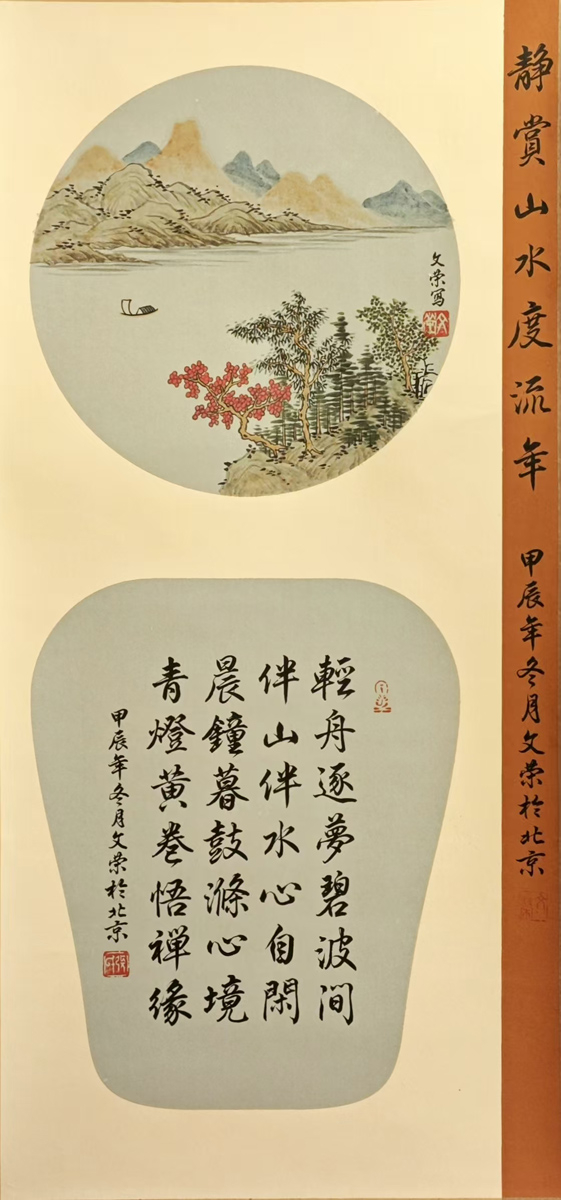 静赏山水度流年
甲辰年冬月文荣於北京
文荣写
輕舟逐夢碧波澗
伴山伴水心自閑
晨鐘暮鼓滌心境
青燈黄卷悟禅緣
甲辰年冬月文荣於北京